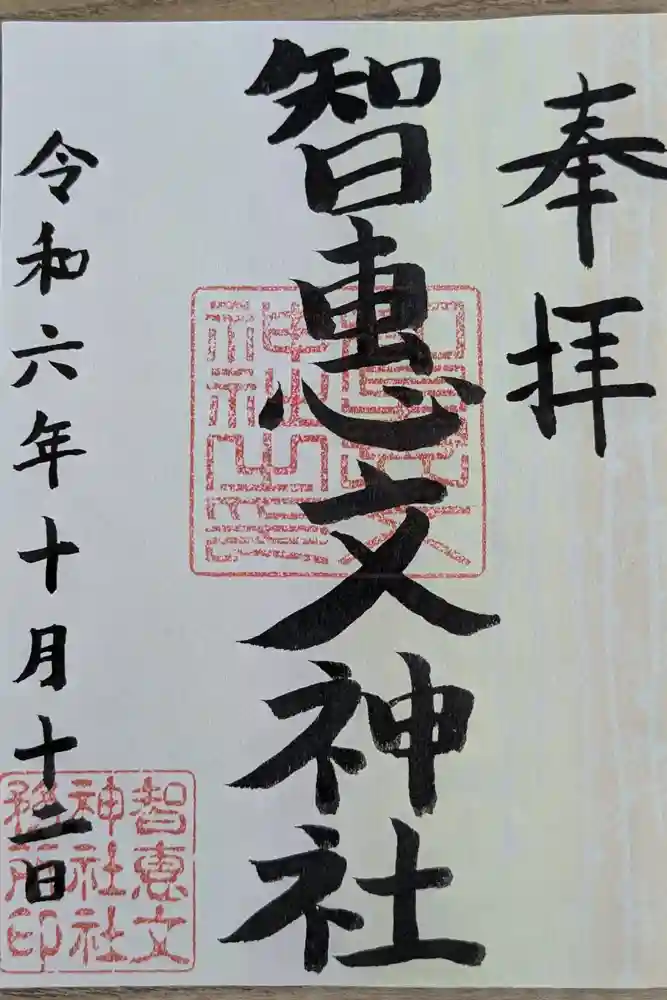 奉拝
智惠文神社
令和六年十月十二日
智恵文
神社社
務所印